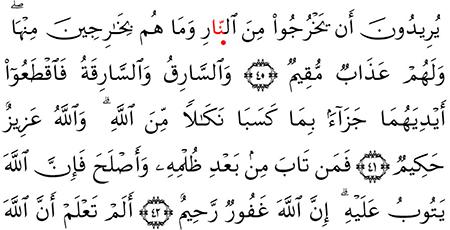 يُرِيدُونَ أَن يَخْرُجُوا۟ مِنَ ٱلنّ۪ارِ وَمَا هُم بِخَٰرِجِينَ مِنْهَاۖ
وَلَهُمْ عَذَابٌ مُّقِيمٌ ٤٠ وَٱلسَّارِقُ وَٱلسَّارِقَةُ فَٱقْطَعُوٓا۟
أَيْدِيَهُمَا جَزَآءَۢ بِمَا كَسَبَا نَكَٰلًا مِّنَ ٱللَّهِۗ وَٱللَّهُ عَزِيزٌ
حَكِيمٌ ٤١ فَمَن تَابَ مِنۢ بَعْدِ ظُلْمِهِۦ وَأَصْلَحَ فَإِنَّ ٱللَّهَ
يَتُوبُ عَلَيْهِۗ إِنَّ ٱللَّهَ غَفُورٌ رَّحِيمٌ ٤٢ أَلَمْ تَعْلَمْ أَنَّ ٱللَّهَ